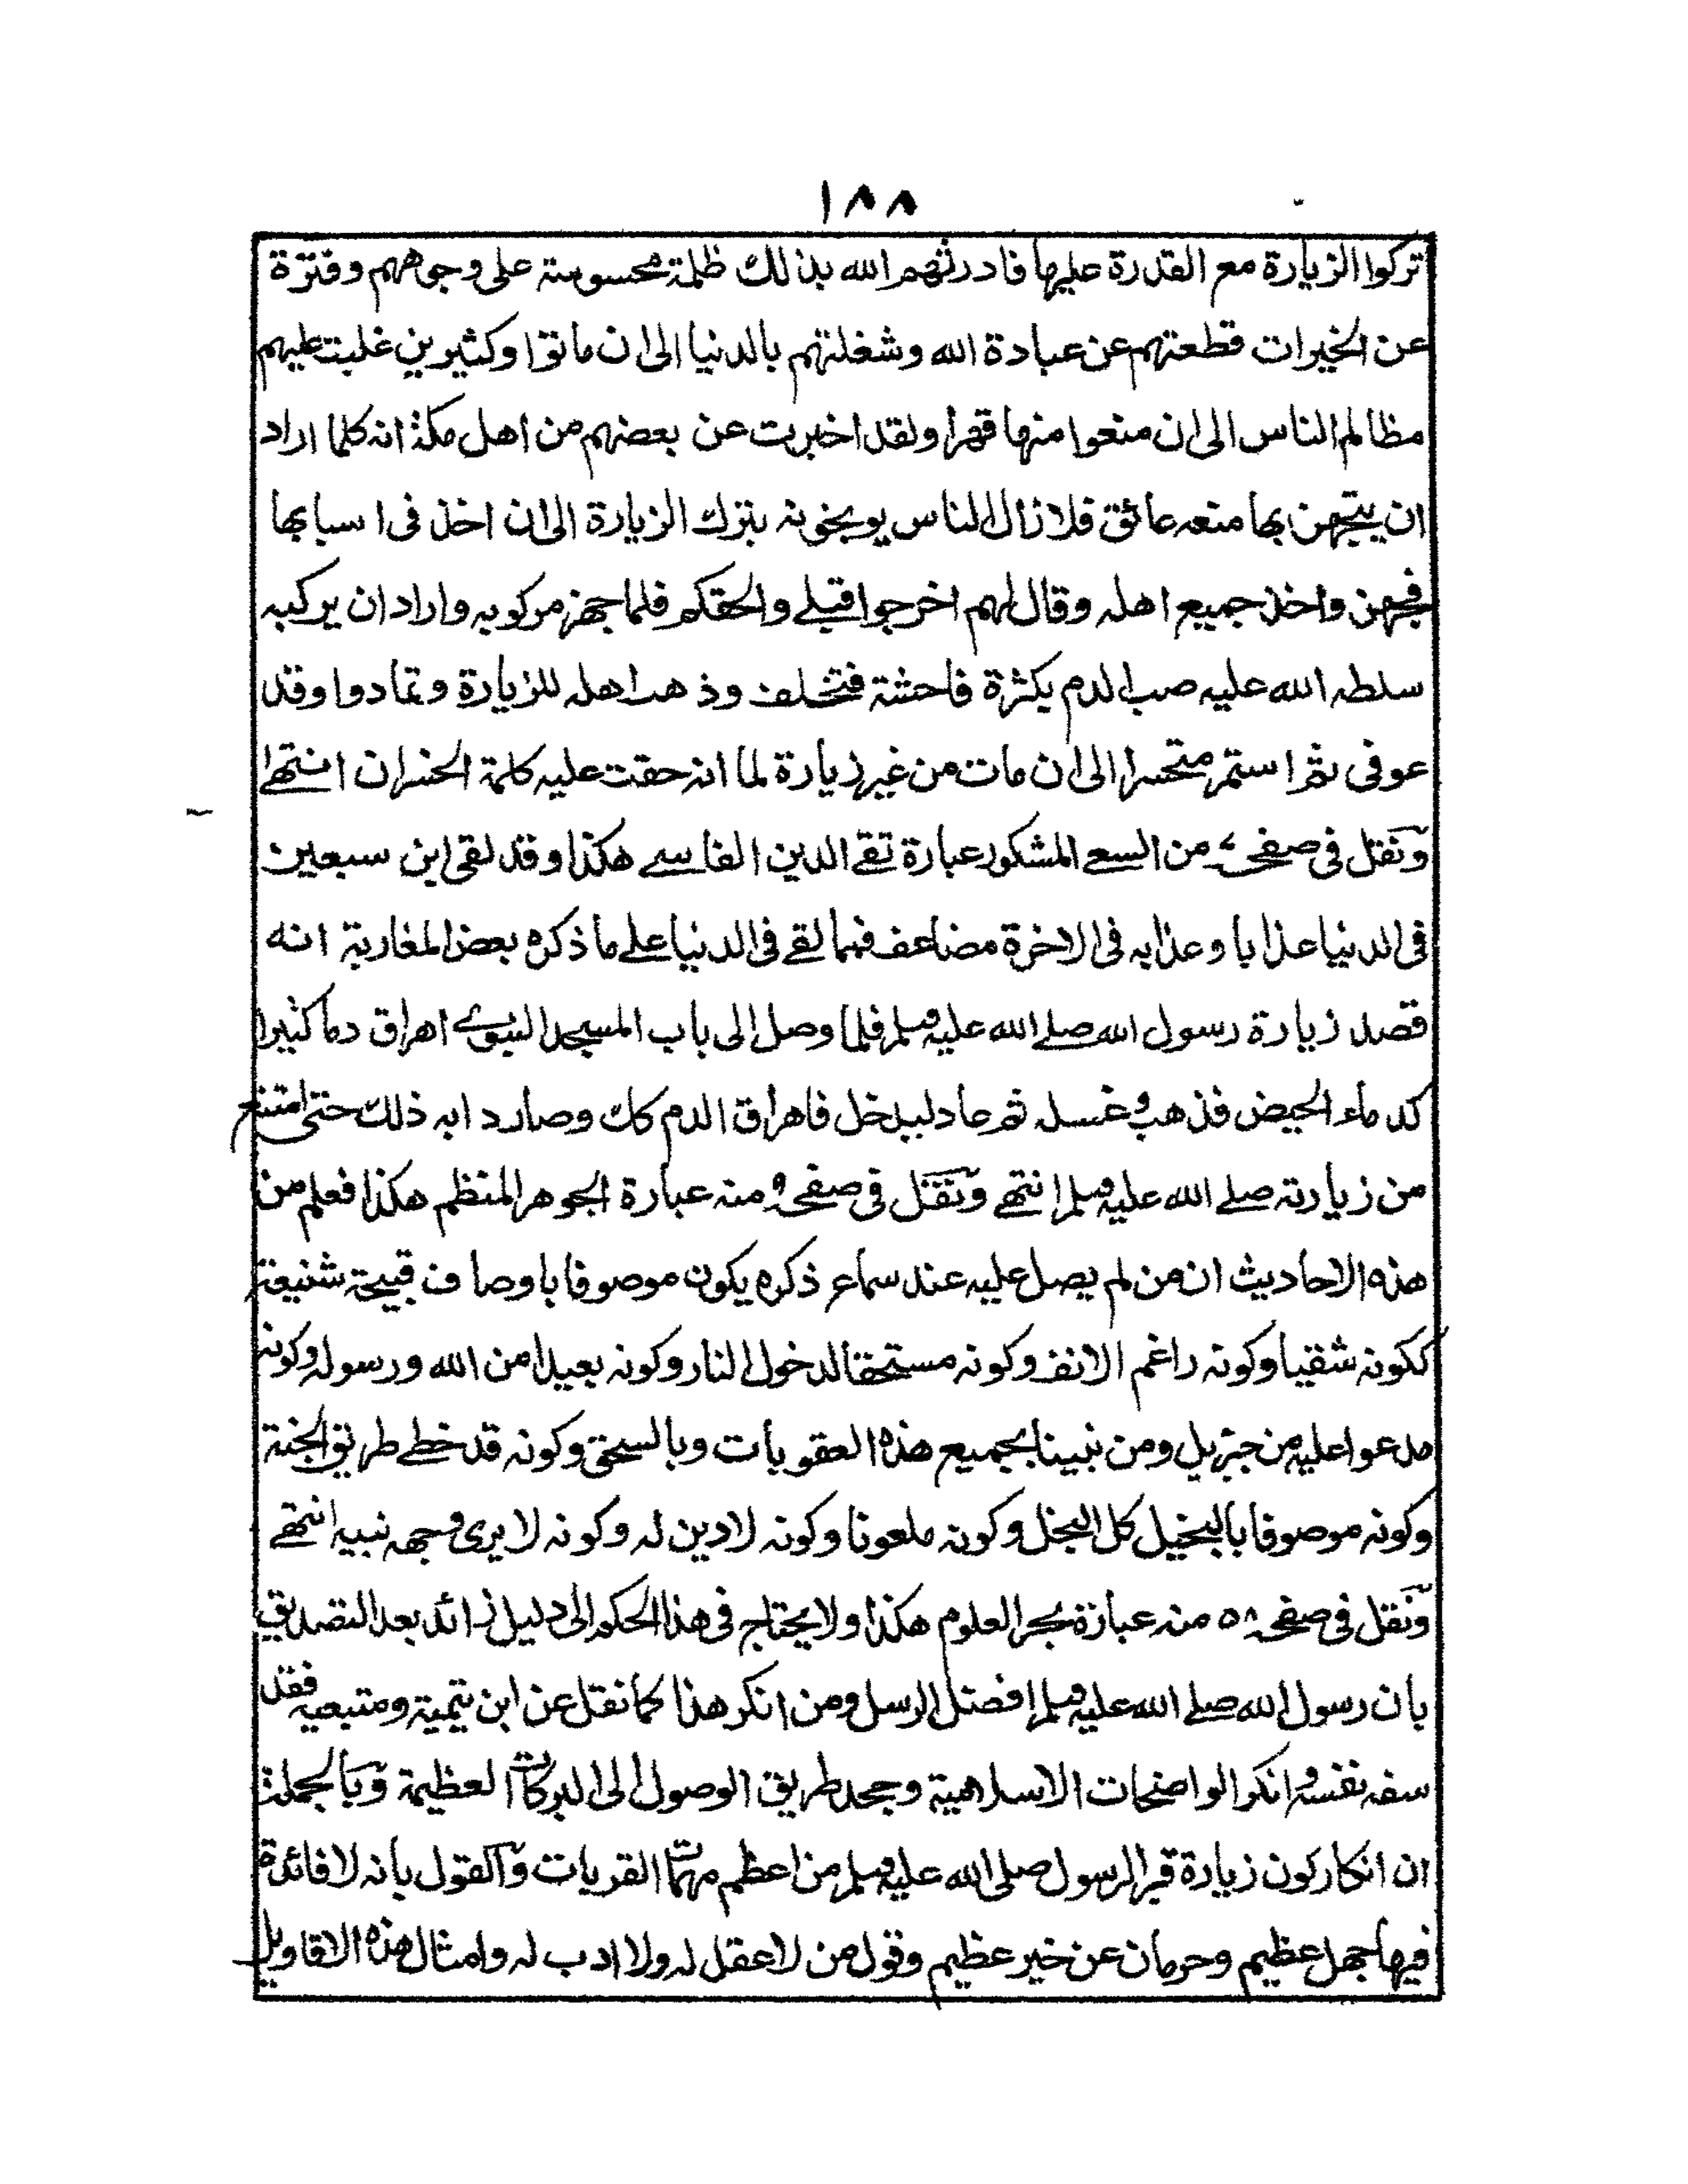 ١٨٨
تركوا الزيارة مع القدرة عليها فادرثهم الله بذلك ظلمة محسوسة على وجوههم وفترة
عن الخيرات قطعتهم عن عبادة الله وشغلتهم بالدنيا الى ان ماتوا وكثيرين غلبت عليهم
مظالم الناس الى ان منعوا منها قهرا ولقد اخبرت عن بعضهم من اهل مكة انه كلما اراد
ان يتجهز بها منعه عائق فلا زال الناس يوبخونه بترك الزيارة الى ان اخذ فى اسبابها
فجهز واخذ جميع اهله وقال لهم اخرجوا قبلے والحقكم فلما جهز مركوبه واراد ان يركبه
سلطه الله عليه صب الدم بكثرة فاحشة فتخلف وذهب اهله للزيارة وتمادوا وقد
عوفى ثم استمر متحسرا الى ان مات من غير زيارة لما انه حقت عليه كلمة الخسران انتهے
ونقل فى صفحہ من السعے المشكور عبارة تقے الدين الفاسے هكذا وقد لقى ابن سبعين
فى الدنيا عذابا وعذابه فى الاخرة مضاعف فمما لقے فى الدنيا علے ما ذكره بعض المغاربة انه
قصد زيارة رسول الله صلے الله عليه وسلم فلما وصل الى باب المسجد النبوے اهراق دما كثيرا
كدماء الحيض فذهب وغسله ثم عاد ليدخل فاهراق الدم كك وصار دابه ذلك حتى امتنع
من زيارته صلے الله عليه وسلم انتهے ونقل فى صفحہ منه عبارة الجوهر المنظم هكذا فعلم من
هذه الاحاديث ان من لم يصل عليه عند سماع ذكره يكون موصوفا باوصاف قبيحة شنيعة
ككونه شقيا وكونه راغم الانف وكونه مستحقا لدخول النار وكونه بعيدا من الله ورسوله وكونه
مدعوا عليه من جبرئيل ومن نبينا بجميع هذه العقوبات وبالسحق وكونه قد خطے طريق الجنة
وكونه موصوفا بالبخيل كل البخل وكونه ملعونا وكونه لا دين له وكونه لا يرى وجهه نبيه انتهے
ونقل فى صفحہ ٥٨ منه عبارة بحر العلوم هكذا ولا يحتاج فى هذا الحكم الى دليل زائد بعد التصديق
بان رسول الله صلے الله عليه وسلم افضل الرسل ومن انكر هذا كما نقل عن ابن تيمية ومتبعيه فقد
سفه نفسه وانكر الواضحات الاسلامية وجحد طريق الوصول الى البركات العظيمة وبالجملة
ان انكار كون زيارة قبر الرسول صلى الله عليه وسلم من اعظم مهمات القربات والقول بانه لا فائدة
فيها جهل عظيم وحرمان عن خير عظيم وقول من لا عقل له ولا ادب له وامثال هذه الاقاويل